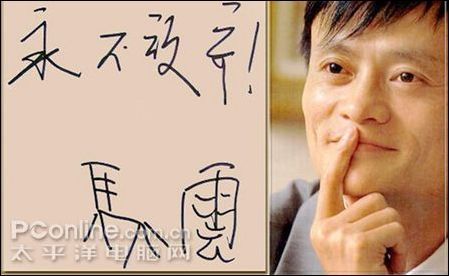 永不放弃!
馬雲
PConline.com.cn
太平洋电脑网